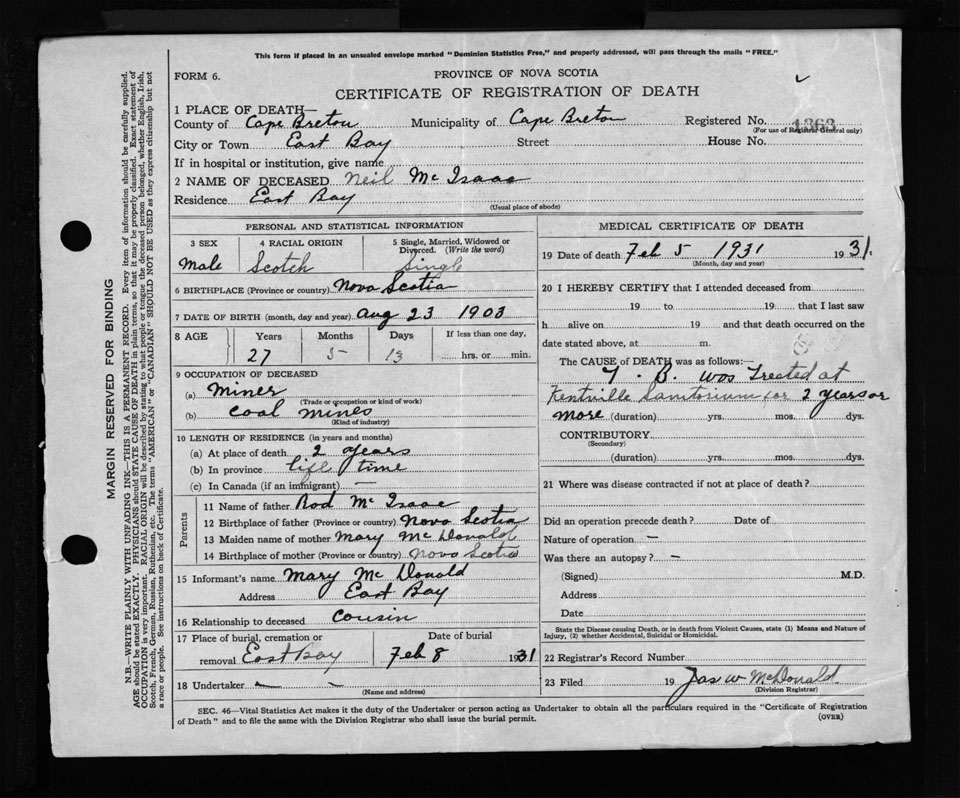 This form if placed in an unsealed envelope marked "Dominion Statistics Free," and properly addressed, will pass through the mails "FREE."
FORM 6.
PROVINCE OF NOVA SCOTIA
CERTIFICATE OF REGISTRATION OF DEATH
1 PLACE OF DEATH—
County of Cape Breton Municipality of Cape Breton Registered No. 1363
(For use of Registrar General only)
City or Town East Bay Street House No.
If in hospital or institution, give name
2 NAME OF DECEASED Neil Mc Isaac
Residence East Bay
(Usual place of abode)
PERSONAL AND STATISTICAL INFORMATION
3 SEX 4 RACIAL ORIGIN 5 Single, Married, Widowed or Divorced. (Write the word)
Male Scotch Single
6 BIRTHPLACE (Province or country) Nova Scotia
7 DATE OF BIRTH (month, day and year) Aug 23 1903
8 AGE Years Months Days If less than one day,
27 5 13 hrs. or min.
9 OCCUPATION OF DECEASED
(a) Miner
(Trade or occupation or kind of work)
(b) Coal mines
(Kind of industry)
10 LENGTH OF RESIDENCE (in years and months)
(a) At place of death 2 years
(b) In province life time
(c) In Canada (if an immigrant) —
Parents
11 Name of father Rod Mc Isaac
12 Birthplace of father (Province or country) Nova Scotia
13 Maiden name of mother Mary Mc Donald
14 Birthplace of mother (Province or country) Nova Scotia
15 Informant's name Mary Mc Donald
Address East Bay
16 Relationship to deceased Cousin
17 Place of burial, cremation or removal East Bay Date of burial Feb 8 1931
18 Undertaker — -
(Name and address)
MEDICAL CERTIFICATE OF DEATH
19 Date of death Feb 5 1931 1931
(Month, day and year)
20 I HEREBY CERTIFY that I attended deceased from
19 to 19 that I last saw
h alive on 19 and that death occurred on the
date stated above, at m.
The CAUSE of DEATH was as follows:—
T. B. was Treated at
Kentville Sanitorium for 2 years or
more (duration) yrs. mos. dys.
CONTRIBUTORY
(Secondary)
(duration) yrs. mos. dys.
21 Where was disease contracted if not at place of death?
Did an operation precede death? Date of
Nature of operation —
Was there an autopsy? —
(Signed) M.D.
Address
Date
State the Disease causing Death, or in death from Violent Causes, state (1) Means and Nature of
Injury, (2) whether Accidental, Suicidal or Homicidal.
22 Registrar's Record Number
23 Filed 19 Jas W McDonald
(Division Registrar)
SEC. 46—Vital Statistics Act makes it the duty of the Undertaker or person acting as Undertaker to obtain all the particulars required in the "Certificate of Registration
of Death" and to file the same with the Division Registrar who shall issue the burial permit.
(OVER)
MARGIN RESERVED FOR BINDING
N.B.—WRITE PLAINLY WITH UNFADING INK—THIS IS A PERMANENT RECORD. Every item of information should be carefully supplied.
AGE should be stated EXACTLY. PHYSICIANS should STATE CAUSE OF DEATH in plain terms, so that it may be properly classified. Exact statement of
OCCUPATION is very important. RACIAL ORIGIN will be described by stating to what people or tongue the deceased person belonged, whether English, Irish,
Scotch, French, German, Russian, Ruthenian, etc. The terms "AMERICAN" or "CANADIAN" SHOULD NOT BE USED as they express citizenship but not
a race or people. See instructions on back of Certificate.